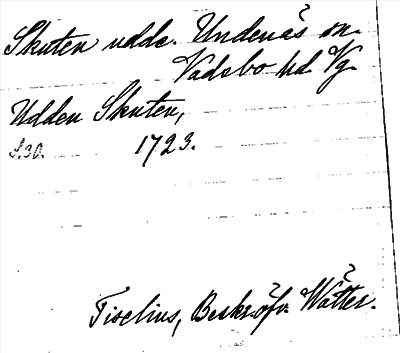 Skuten udde. Undenäs sn.
Vadsbo hd. Vg.
Udden Skuten,
S.30. 1723.
Tiselius, Beskr. öfv. Wätter.